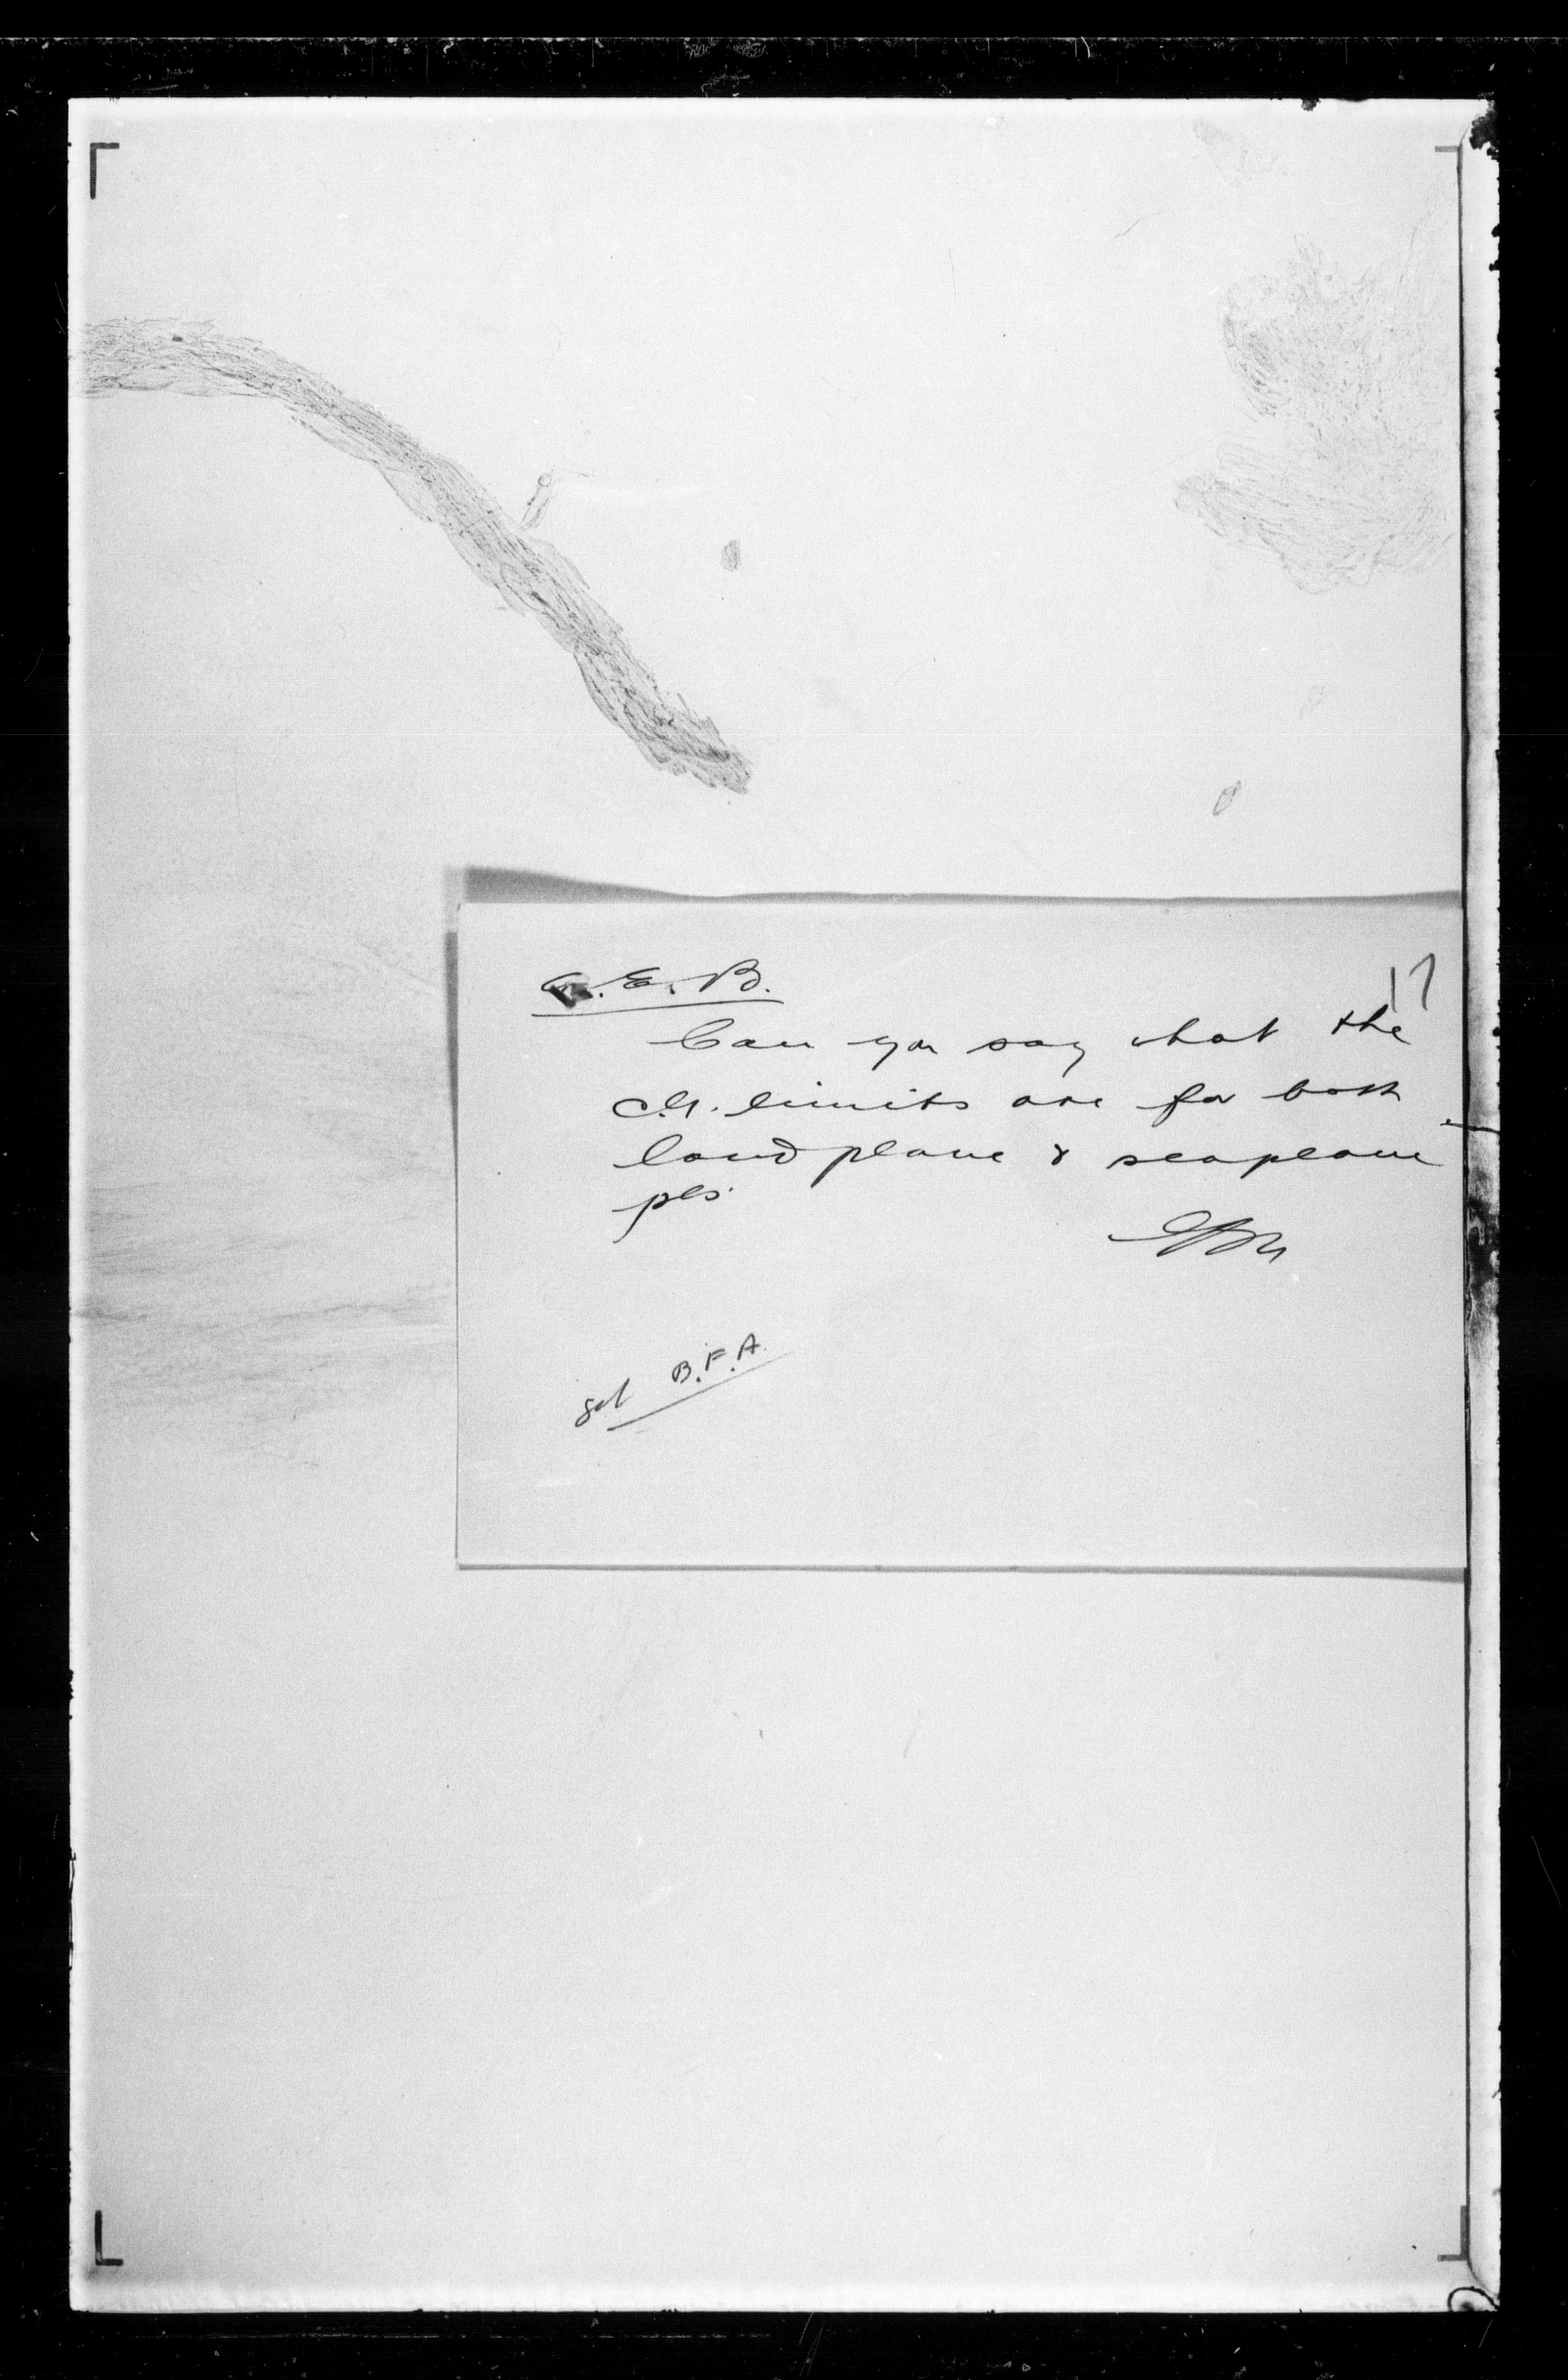 17
A.E.B.
Can you say what the
C.G. limits are for both
landplane & seaplane
pls.
B.F.A.